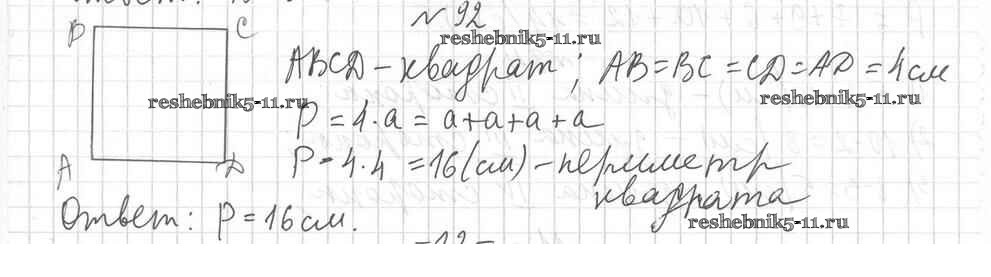 № 92
reshebnik5-11.ru
B C
ABCD - квадрат; AB = BC = CD = AD = 4 см
reshebnik5-11.ru reshebnik5-11.ru
P = 4·a = a+a+a+a
P = 4·4 = 16 (см) - периметр
A D
квадрата
Ответ: P = 16 см.
reshebnik5-11.ru
-12-